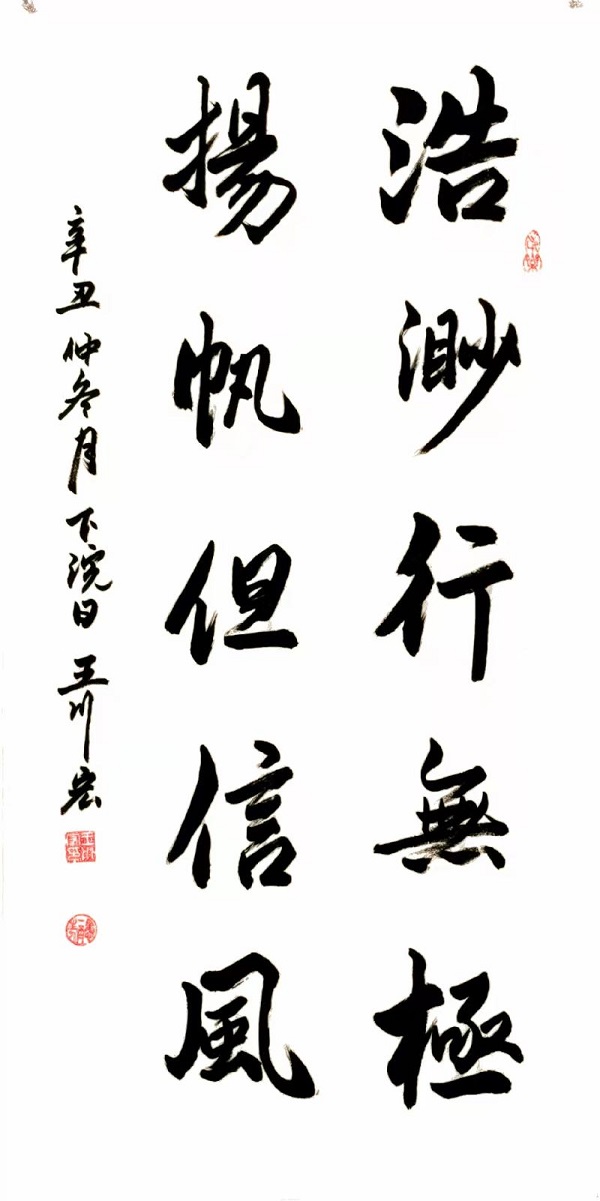 浩渺行無極
揚帆但信風
辛丑仲冬月下浣日王川宏